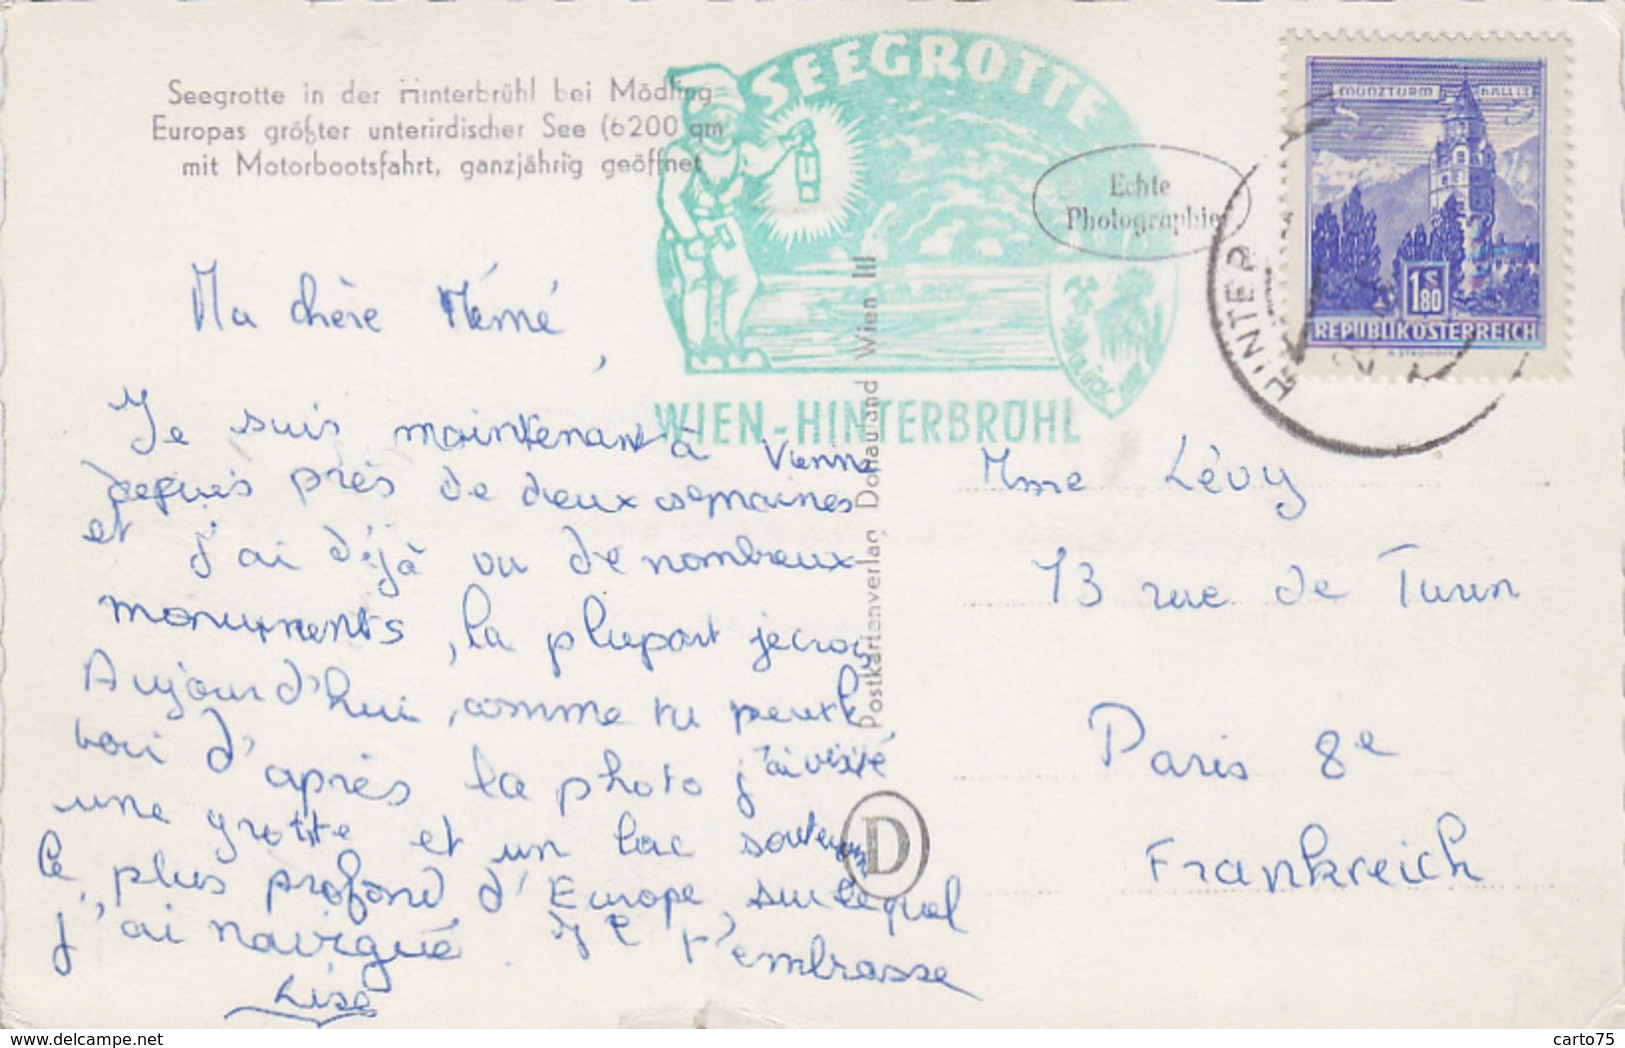 Seegrotte in der Hinterbrühl bei Mödling
Europas größter unterirdischer See (6200 qm
mit Motorbootsfahrt, ganzjährig geöffnet
SEEGROTTE
GLÜCK AUF
WIEN-HINTERBRÜHL
Echte
Photographie
MÜNZTURM HALL i.T.
1S80
REPUBLIK ÖSTERREICH
HINTER
Postkartenverlag Donauland Wien III
D
Ma chère Mémé,
Je suis maintenant à Vienne
depuis près de deux semaines
et j'ai déjà vu de nombreux
monuments, la plupart je crois
Aujourd'hui, comme tu peux le
voir d'après la photo j'ai visité
une grotte et un lac souterrain
le plus profond d'Europe, sur lequel
j'ai navigué. Je t'embrasse
Lise
Mme Lévy
13 rue de Turin
Paris 8e
Frankreich
delcampe.net
carto75